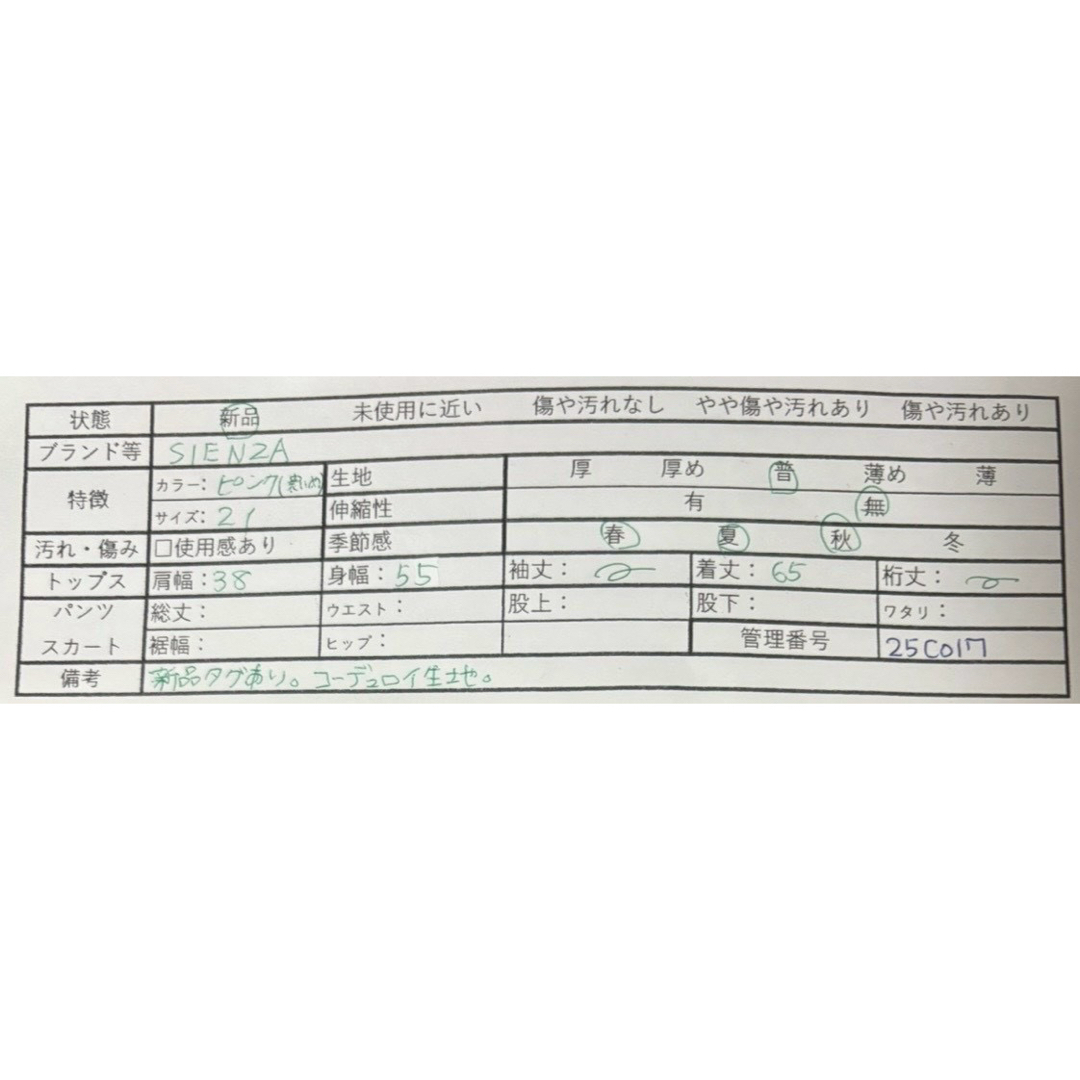 状態 新品 未使用に近い 傷や汚れなし やや傷や汚れあり 傷や汚れあり
ブランド等 SIENZA
特徴 カラー: ピンク 生地 厚 厚め 普 薄め 薄
サイズ: 21 伸縮性 有 無
汚れ・傷み □使用感あり 季節感 春 夏 秋 冬
トップス 肩幅:38 身幅:55 袖丈: 着丈:65 裄丈:
パンツ 総丈: ウエスト: 股上: 股下: ワタリ:
スカート 裾幅: ヒップ: 管理番号 25C017
備考 新品タグあり。コーデュロイ生地。